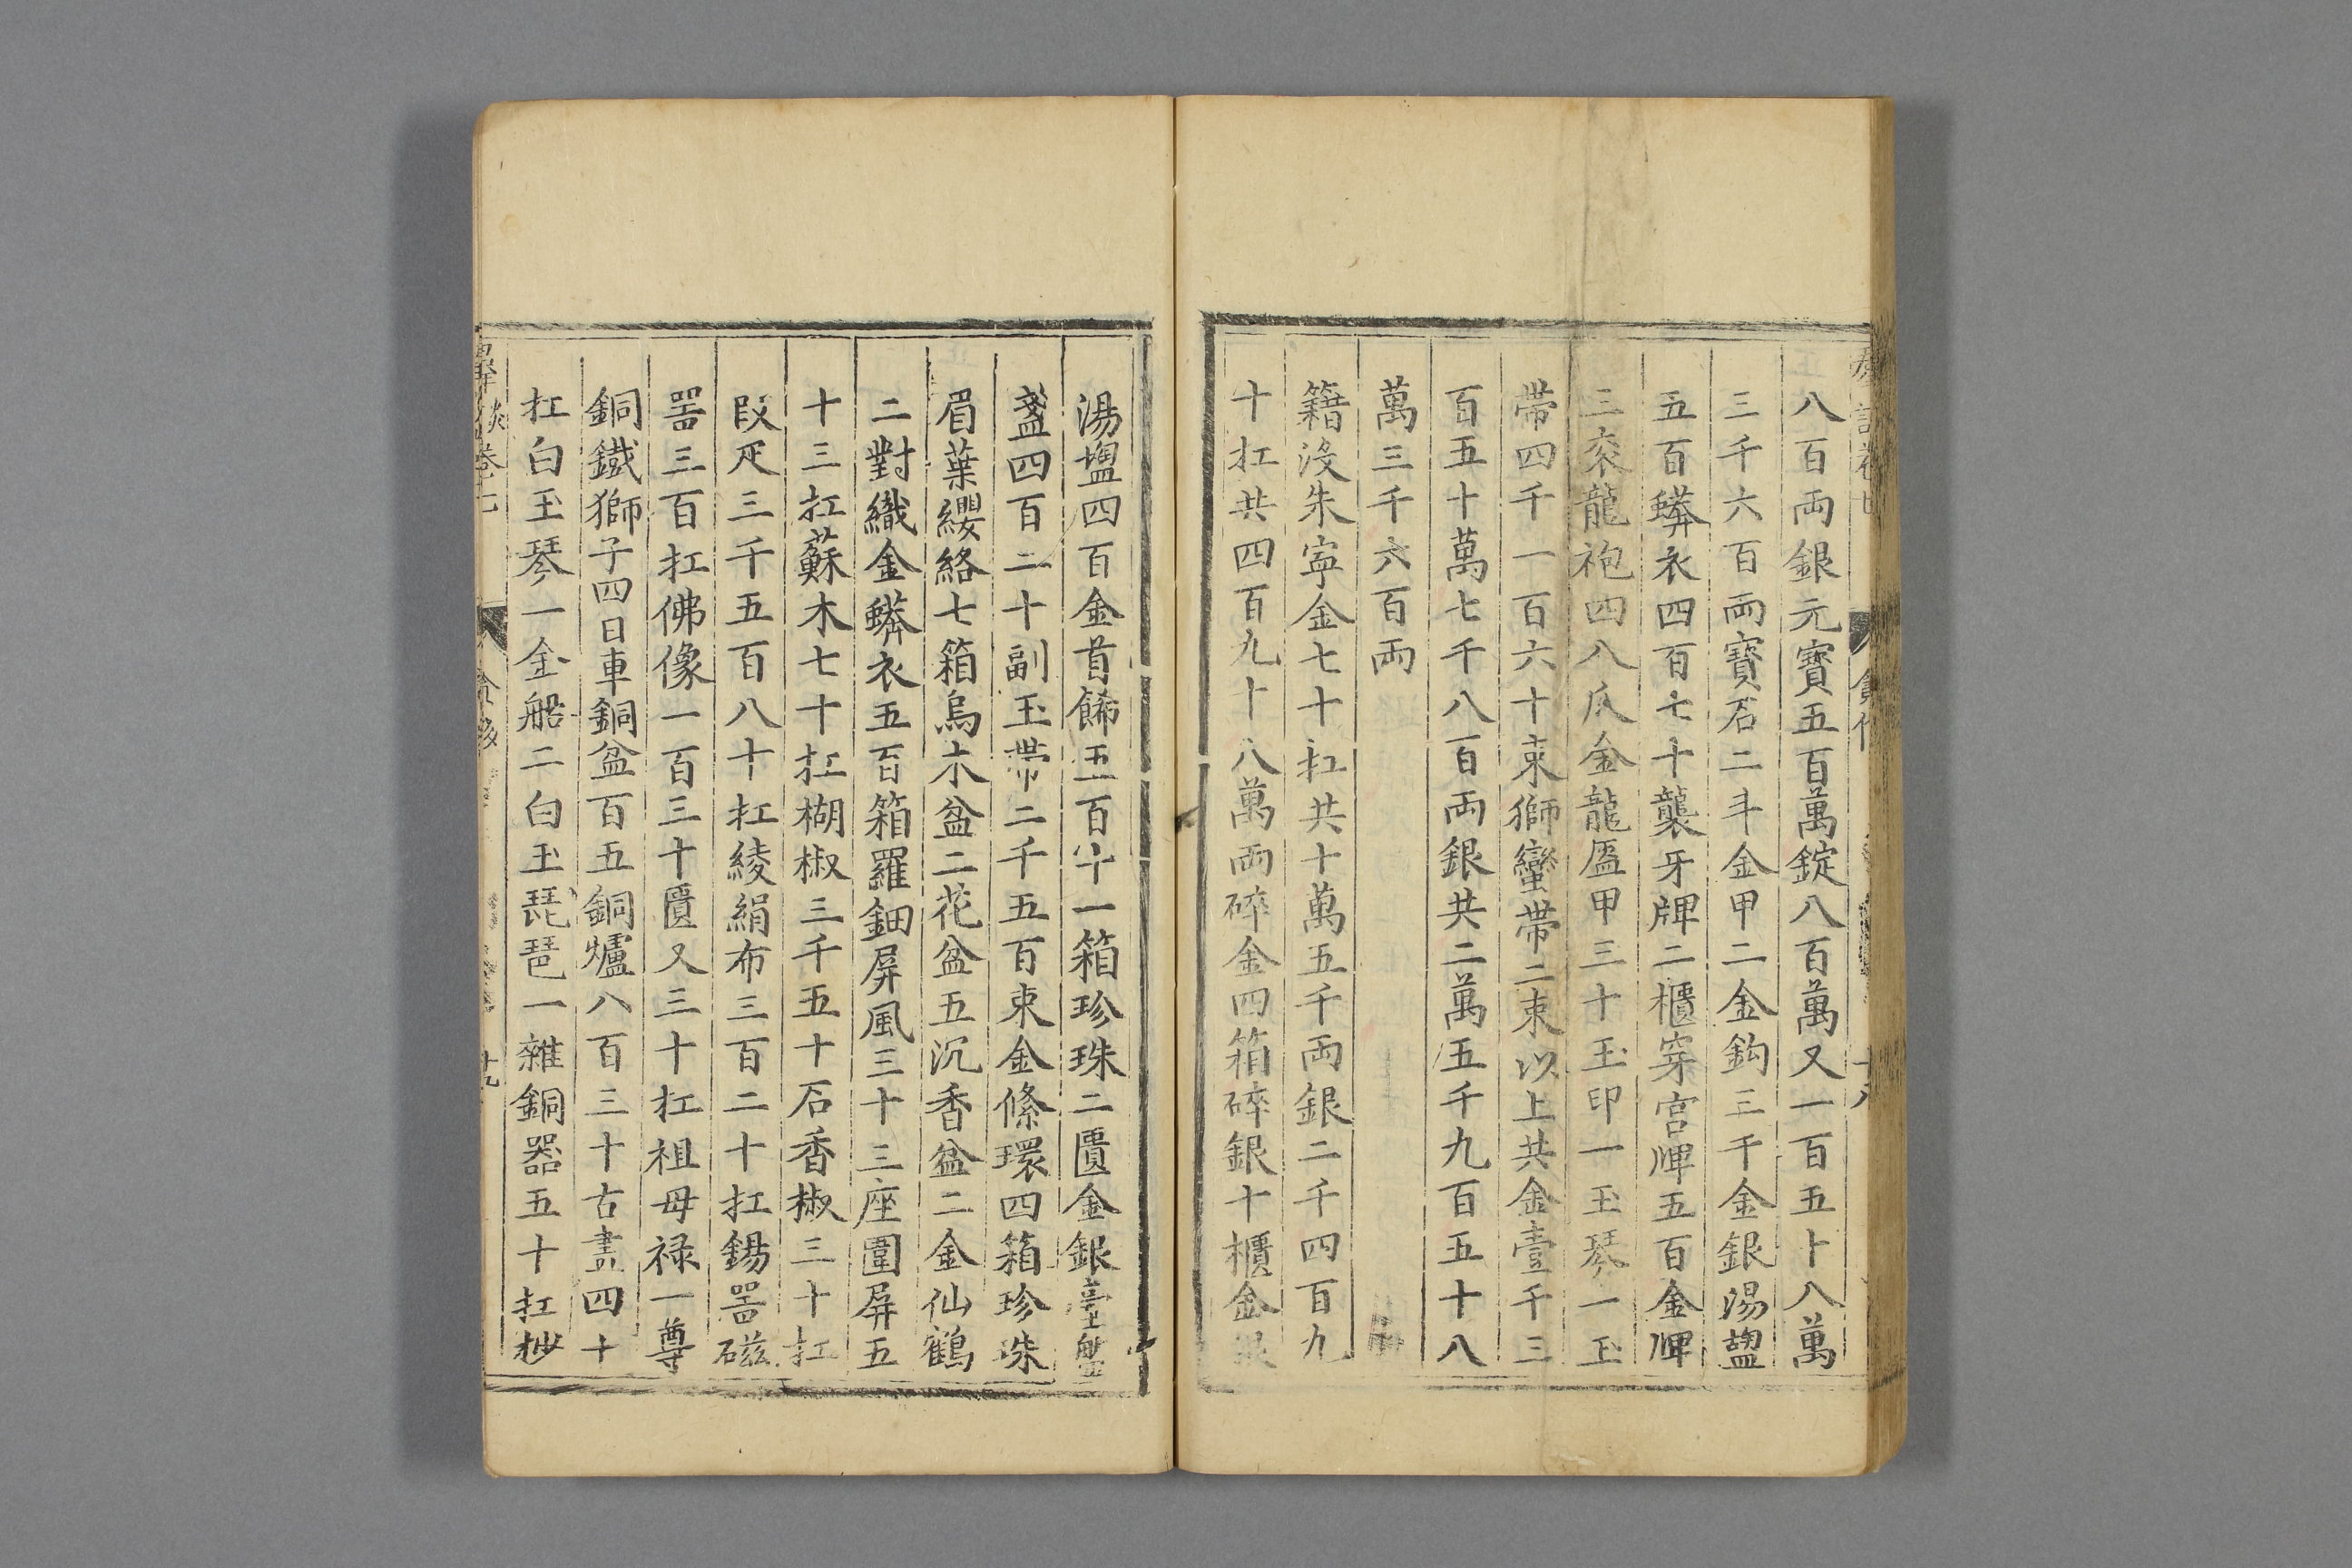 八百両銀元寶五百萬錠八百萬又一百五十八萬
三千六百両寶石二斗金甲二金鈎三千金銀湯盬
五百蟒衣四百七十襲牙牌二櫃穿宮牌五百金牌
三衮龍袍四八爪金龍盔甲三十玉印一玉琴一玉
帶四千一百六十束獅蠻帶二束以上共金壹千三
百五十萬七千八百両銀共二萬五千九百五十八
萬三千六百両
籍沒朱寧金七十扛共十萬五千両銀二千四百九
十扛共四百九十八萬両碎金四箱碎銀十櫃金銀
湯盬四百金首餙五百十一箱珍珠二匱金銀臺盤
盞四百二十副玉帶二千五百束金絛環四箱珍珠
眉葉纓絡七箱烏木盆二花盆五沉香盆二金仙鶴
二對織金蟒衣五百箱羅鈿屏風三十三座圍屏五
十三扛蘇木七十扛椒三千五十石香椒三十扛
段疋三千五百八十扛綾絹布三百二十扛錫噐磁
噐三百扛佛像一百三十匱又三十扛祖母禄一尊
銅鐵獅子四日車銅盆百五銅爐八百三十古畫四十
扛白玉琴一金船二白玉琵琶一雜銅器五十扛桫
十八
十九